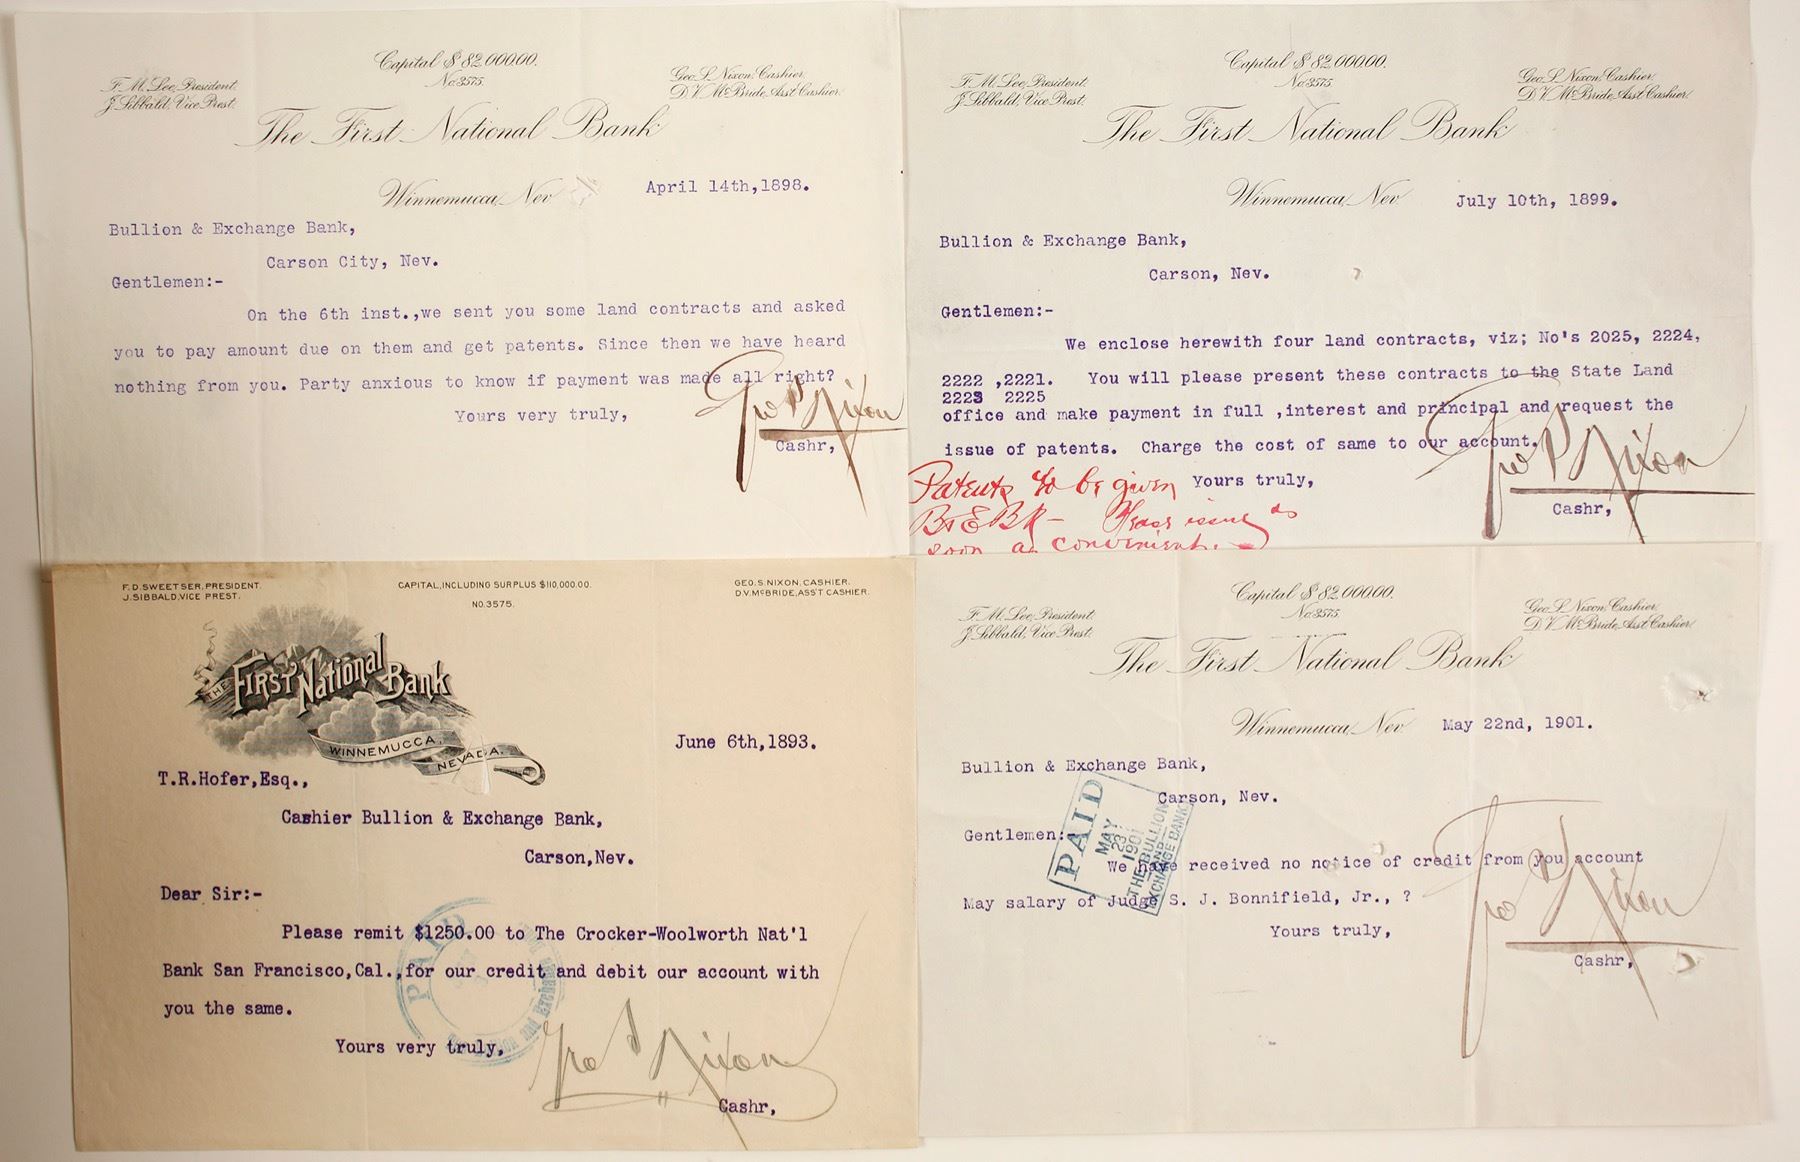 Capital $82,000.00.
No. 3575.
F. M. Lee, President.
J. Sibbald, Vice Prest.
Geo. S. Nixon, Cashier.
D. V. McBride, Asst Cashier.
The First National Bank
Winnemucca, Nev
April 14th,1898.
Bullion & Exchange Bank,
Carson City, Nev.
Gentlemen:-
On the 6th inst.,we sent you some land contracts and asked
you to pay amount due on them and get patents. Since then we have heard
nothing from you. Party anxious to know if payment was made all right?
Yours very truly,
Geo S Nixon
Cashr,
Capital $82,000.00.
No. 3575.
F. M. Lee, President.
J. Sibbald, Vice Prest.
Geo. S. Nixon, Cashier.
D. V. McBride, Asst Cashier.
The First National Bank
Winnemucca, Nev
July 10th, 1899.
Bullion & Exchange Bank,
Carson, Nev.
Gentlemen:-
We enclose herewith four land contracts, viz; No's 2025, 2224,
2222 ,2221. You will please present these contracts to the State Land
2223 2225
office and make payment in full ,interest and principal and request the
issue of patents. Charge the cost of same to our account.
Yours truly,
Geo S Nixon
Cashr,
Patents to be given
B & E BK - Please issue as
soon as convenient.
F. D. SWEETSER, PRESIDENT.
J. SIBBALD, VICE PREST.
CAPITAL, INCLUDING SURPLUS $110,000.00.
NO. 3575.
GEO. S. NIXON, CASHIER.
D. V. McBRIDE, ASS'T CASHIER.
THE FIRST National Bank
WINNEMUCCA, NEVADA.
June 6th,1893.
T.R.Hofer,Esq.,
Cashier Bullion & Exchange Bank,
Carson,Nev.
Dear Sir:-
Please remit $1250.00 to The Crocker-Woolworth Nat'l
Bank San Francisco,Cal.,for our credit and debit our account with
you the same.
Yours very truly,
Geo S Nixon
Cashr,
PAID
Bullion and Exchange
Capital $82,000.00.
No. 3575.
F. M. Lee, President.
J. Sibbald, Vice Prest.
Geo. S. Nixon, Cashier.
D. V. McBride, Asst Cashier.
The First National Bank
Winnemucca, Nev
May 22nd, 1901.
Bullion & Exchange Bank,
Carson, Nev.
Gentlemen:
We have received no notice of credit from you account
May salary of Judge S. J. Bonnifield, Jr., ?
Yours truly,
Geo S Nixon
Cashr,
PAID
MAY
23
1901
THE BULLION
AND
EXCHANGE BANK